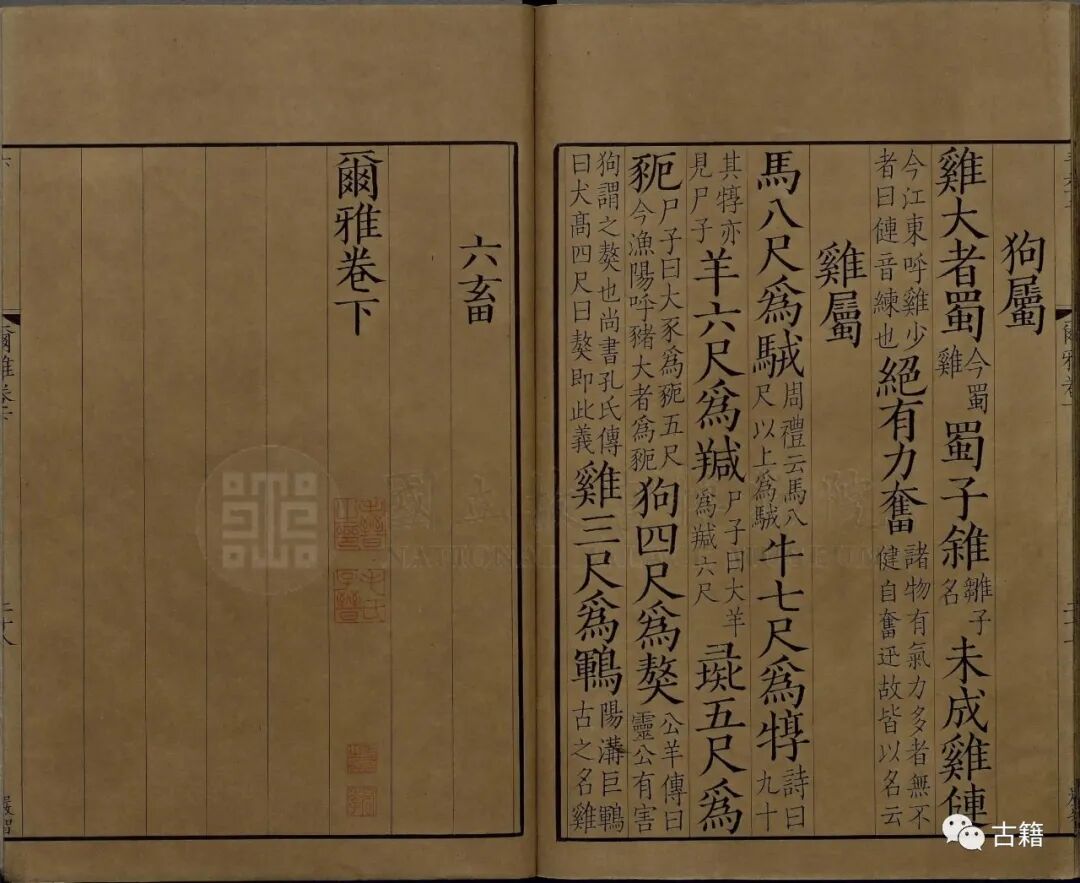 狗屬
雞大者蜀今蜀雞蜀子雓雛子名未成雞僆
今江東呼雞少者曰僆音練也絕有力奮諸物有氣力多者無不健自奮迅故皆以名云
雞屬
馬八尺爲駥周禮云馬八尺以上爲駥牛七尺爲犉詩曰九十
其犉亦見尸子羊六尺爲羬尸子曰大羊爲羬六尺彘五尺爲
豟尸子曰大豕爲豟五尺今漁陽呼豬大者爲豟狗四尺爲獒公羊傳曰靈公有害
狗謂之獒也尚書孔氏傳曰犬高四尺曰獒即此義雞三尺爲鶤陽溝巨鶤古之名雞
六畜
爾雅卷下
古籍